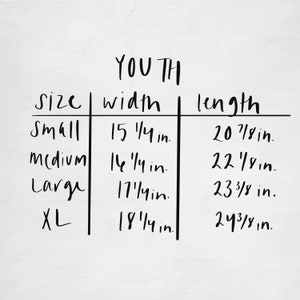 YOUTH
size width length
small 15 1/4 in. 20 7/8 in.
medium 16 1/4 in. 22 1/8 in.
Large 17 1/4 in. 23 3/8 in.
XL 18 1/4 in. 24 3/8 in.